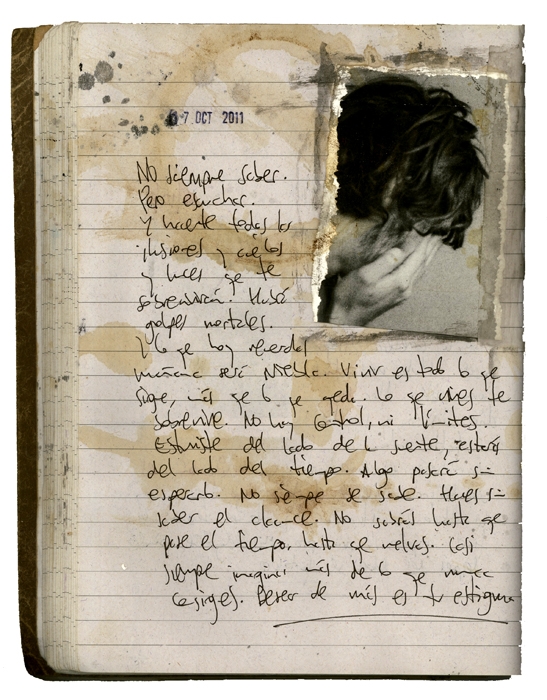 07 OCT 2011
No siempre saber.
Pero escuchar.
Y hacerte todas las
ilusiones y cielos
y luces que te
sobrevivirán. Habrá
golpes mortales.
Y lo que hoy recuerdas
mañana será niebla. Vivir es todo lo que
sigue, más que lo que queda. Lo que vives te
sobrevive. No hay control, ni límites.
Estuviste del lado de la suerte, estarás
del lado del tiempo. Algo pasará sin
esperarlo. No siempre se sabe. Haces sin
saber el alcance. No sabrás hasta que
pase el tiempo, hasta que vuelvas. Casi
siempre imaginas más de lo que nunca
consigues. Desear de más es tu estigma